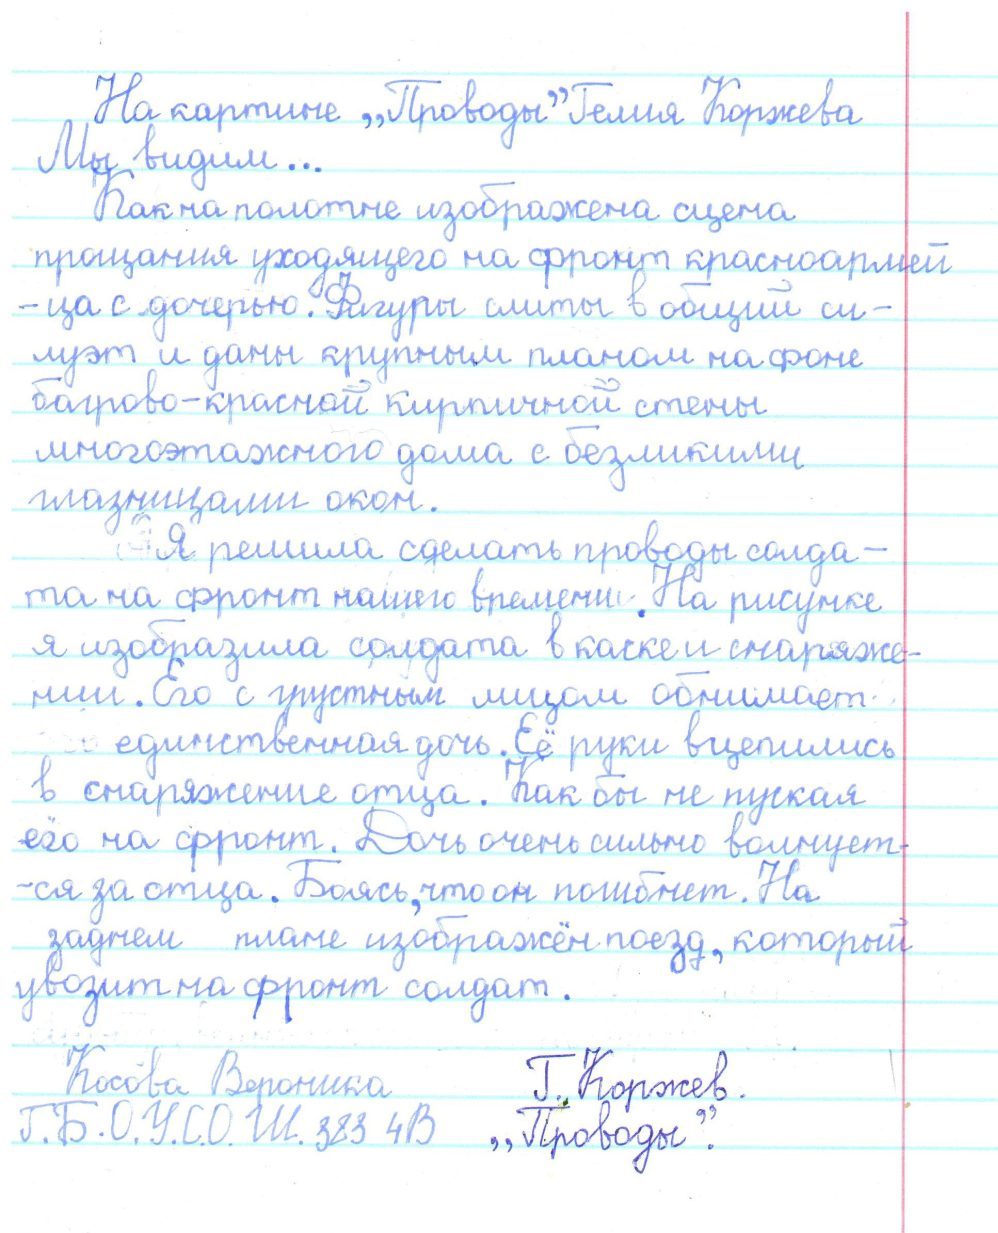 На картине „Проводы” Гелия Коржева
Мы видим...
Как на полотне изображена сцена
прощания уходящего на фронт красноармей
-ца с дочерью. Фигуры слиты в общий си-
луэт и даны крупным планом на фоне
багрово-красной кирпичной стены
многоэтажного дома с безликими
глазницами окон.
Я решила сделать проводы солда-
та на фронт нашего времени. На рисунке
я изобразила солдата в каске и снаряже-
нии. Его с грустным лицом обнимает
единственная дочь. Её руки вцепились
в снаряжение отца. Как бы не пуская
его на фронт. Дочь очень сильно волнует-
-ся за отца. Боясь, что он погибнет. На
заднем плане изображён поезд, который
увозит на фронт солдат.
Косова Вероника
Г.Б.О.У.С.О.Ш. 383 4В
Г. Коржев.
„Проводы”.